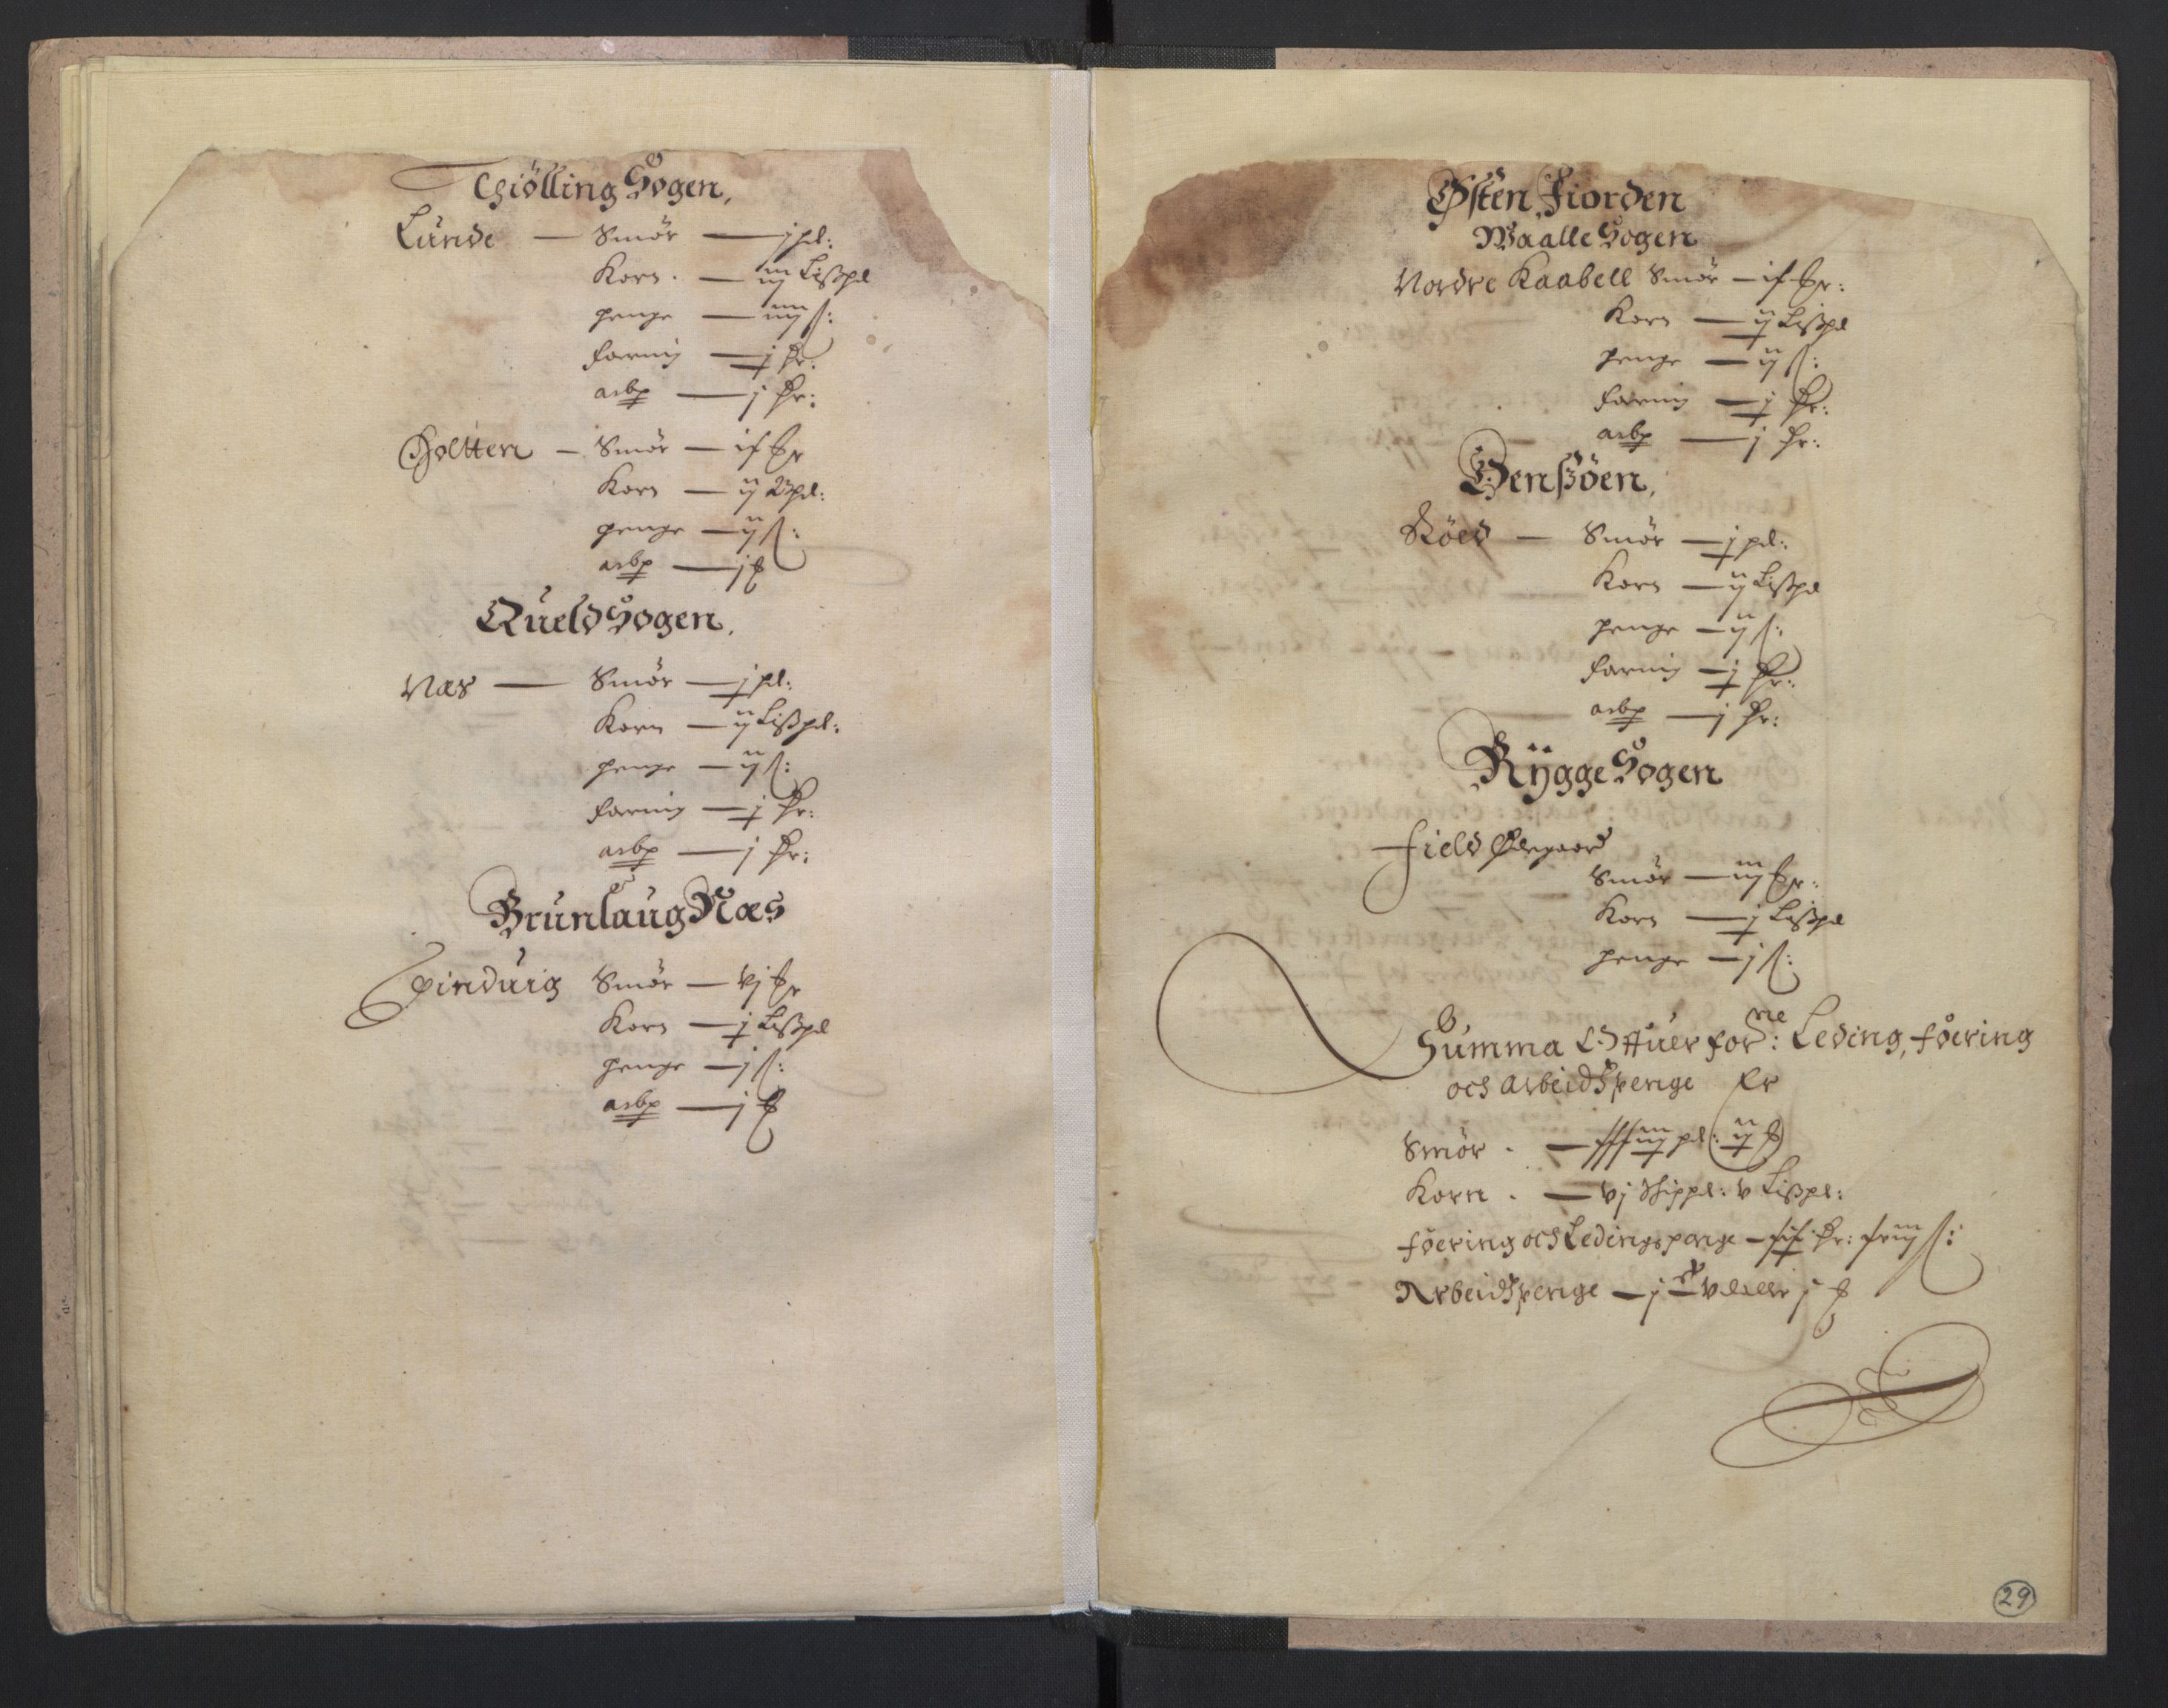 Thiölling Sogen,
Lunde — Smör — j pd:
Korn. — iij Lißpd
penge — iiij ß:
foring — j ßr:
arbp — j ßr:
Holtten — Smör — if
Korn — ij Lßpd:
penge — ij ß:
arbp — j
Queld Sogen,
Næs — Smör — j pd:
Korn — ij Lißpd:
penge — ij ß:
foring — j ßr:
arbp — j ßr:
Brunlaug Næs
Pinduig Smör — vj
Korn — j Lißpd
penge — j ß:
arbp — j
Østen Fiorden
Waalle Sogen
Nordre Kaabell Smör — if
Korn — ij Lißpd
penge — ij ß:
foring — j ßr:
arbp — j ßr:
Henßöen,
Röed — Smör — j pd:
Korn — ij Lißpd
penge — ij ß:
foring — j ßr:
arbp — j ßr:
Rÿgge Sogen
Field Ødegaard
Smör — iij
Korn — j Lißpd
penge — j ß:
Summa offuer forne: Leding, föering
och arbeidspenge Er
Smör. — pd: ij
Korn. — vj Skippd: v Lißpd:
föering och Ledingspenge — ß:
Arbeidspenge — j
29